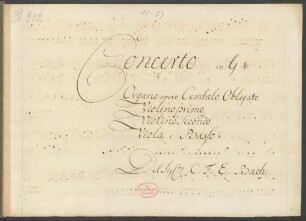 Concerto in G ♮
Organo overo Cembalo Obligato
Violino primo
Violino Secondo
Viola e Basso
Del Sigr. C. F. E. Bach